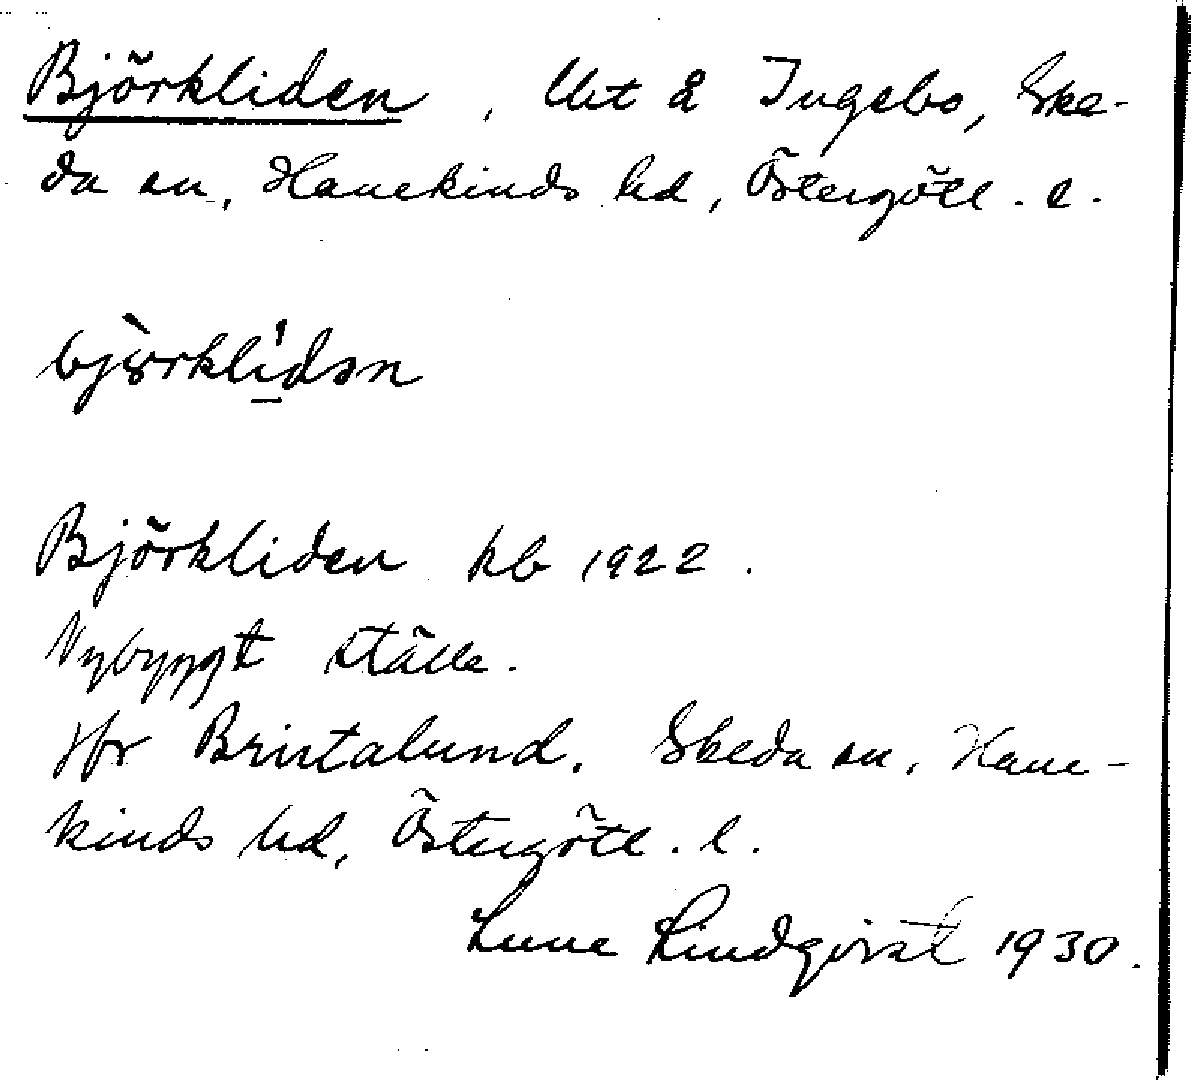 Björkliden, lht å Ingebo, Ske-
da sn, Hanekinds hd, Östergötl. l.
björklidən
Björkliden kb 1922.
Nybyggt ställe.
Jfr Bristalund. Skeda sn, Hane-
kinds hd, Östergötl. l.
Sune Lindqvist 1930.